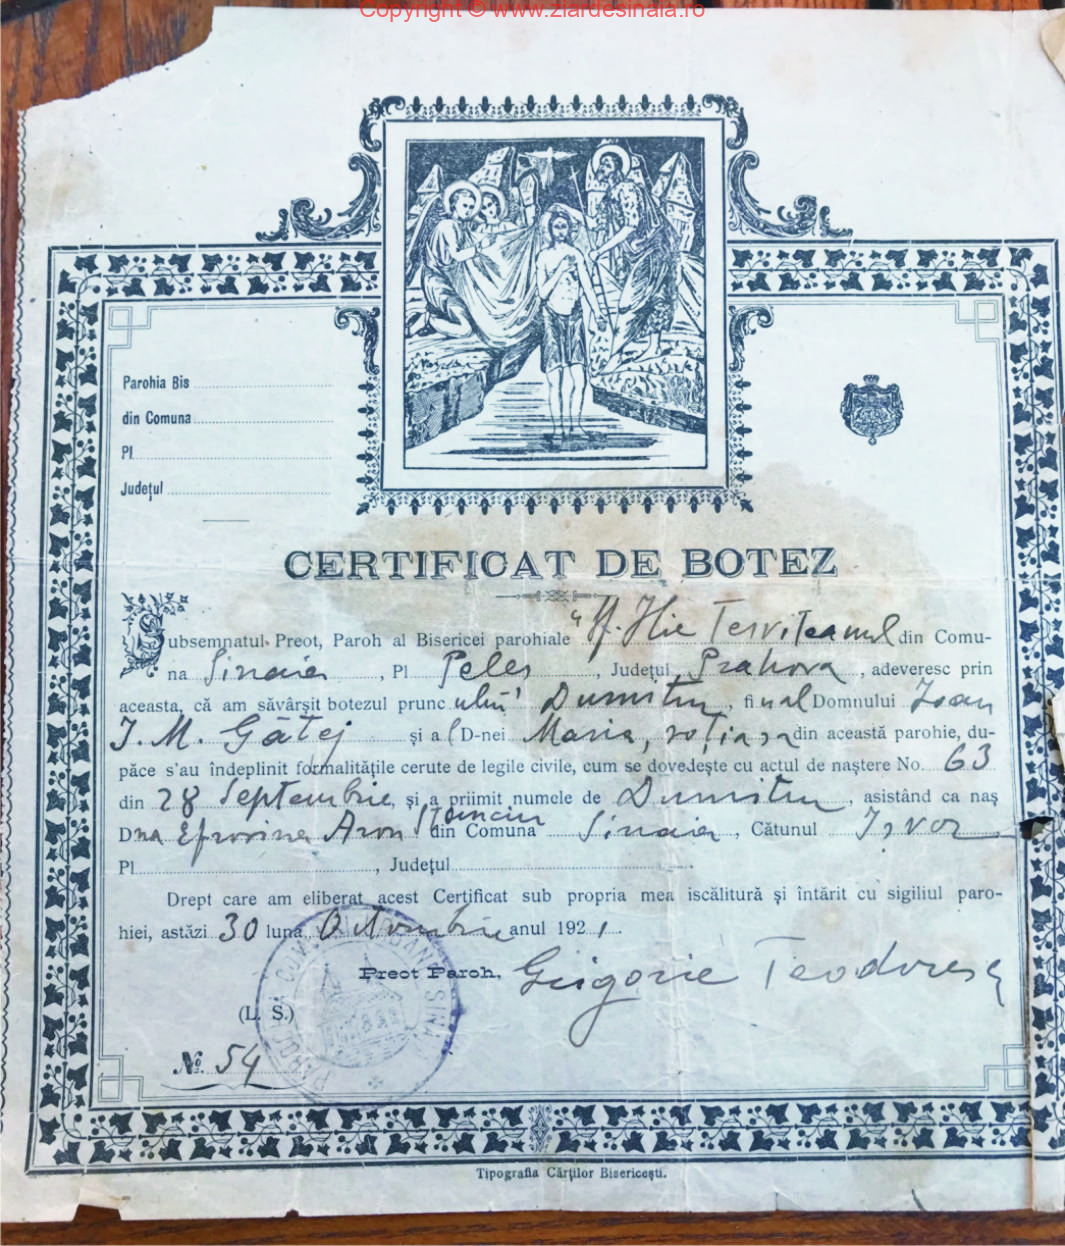 Copyright © www.ziardesinaia.ro
Parohia Bis
din Comuna
Pl
Județul
CERTIFICAT DE BOTEZ
Subsemnatul Preot, Paroh al Bisericei parohiale "Sf. Ilie Tesviteanul din Comu-
na Sinaia, Pl Peleș, Județul Prahova, adeveresc prin
aceasta, că am săvârșit botezul pruncului Dumitru, final Domnului Ioan
I. M. Gâtej și al D-nei Maria, soția sa din această parohie, du-
păce s'au îndeplinit formalitățile cerute de legile civile, cum se dovedește cu actul de naștere No. 63
din 28 Septembrie, și a priimit numele de Dumitru, asistând ca naș
Dna Efrosina Aron Stanciu din Comuna Sinaia, Cătunul Isvor
Pl, Județul
Drept care am eliberat acest Certificat sub propria mea iscălitură și întărit cu sigiliul paro-
hiei, astăzi 30 luna Octombrie anul 1921.
Preot Paroh, Grigorie Teodorescu
(L. S.)
№. 54
Tipografia Cărților Bisericești.